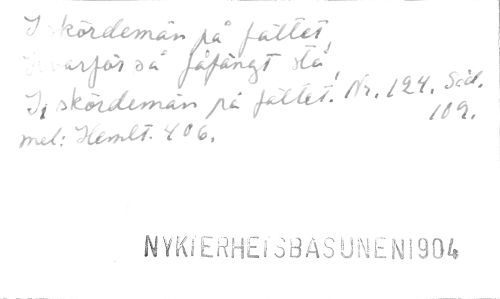 I skördemän på fältet,
Hvarför så fåfängt stå!
I, skördemän på fältet! Nr. 124. Sid. 109.
mel: Hemlt. 406.
NYKTERHETSBASUNEN 1904